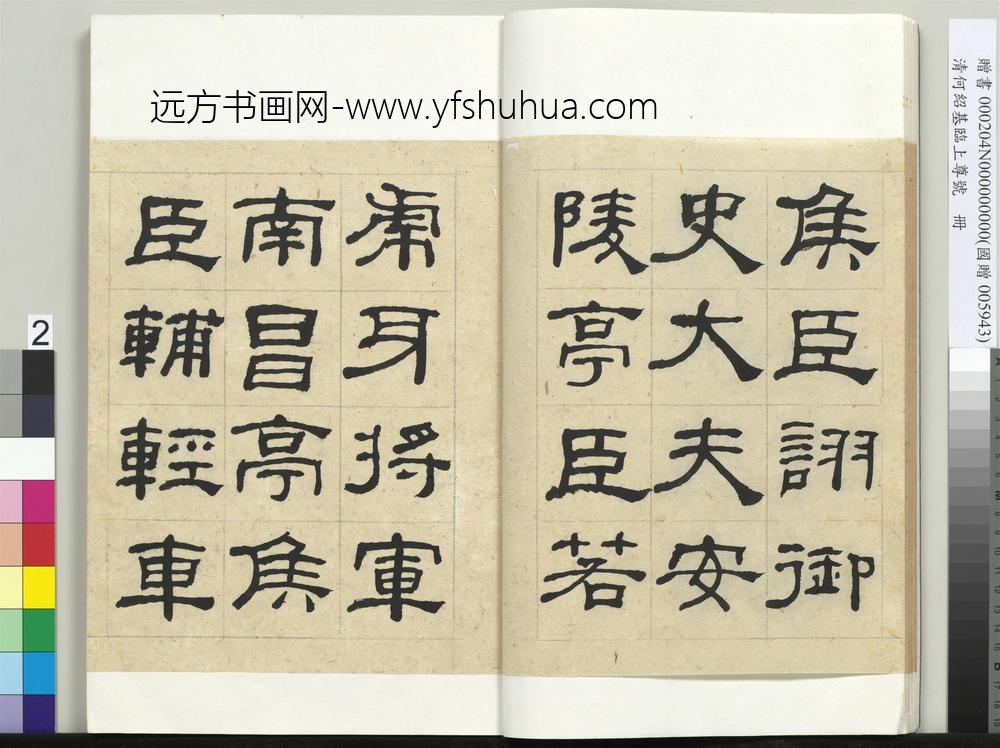 远方书画网-www.yfshuhua.com
侯臣詡御
史大夫安
陵亭臣若
虎牙將軍
南昌亭侯
臣輔輕車
贈書 000204N000000000(國贈 005943)
清何紹基臨上尊號 冊
2